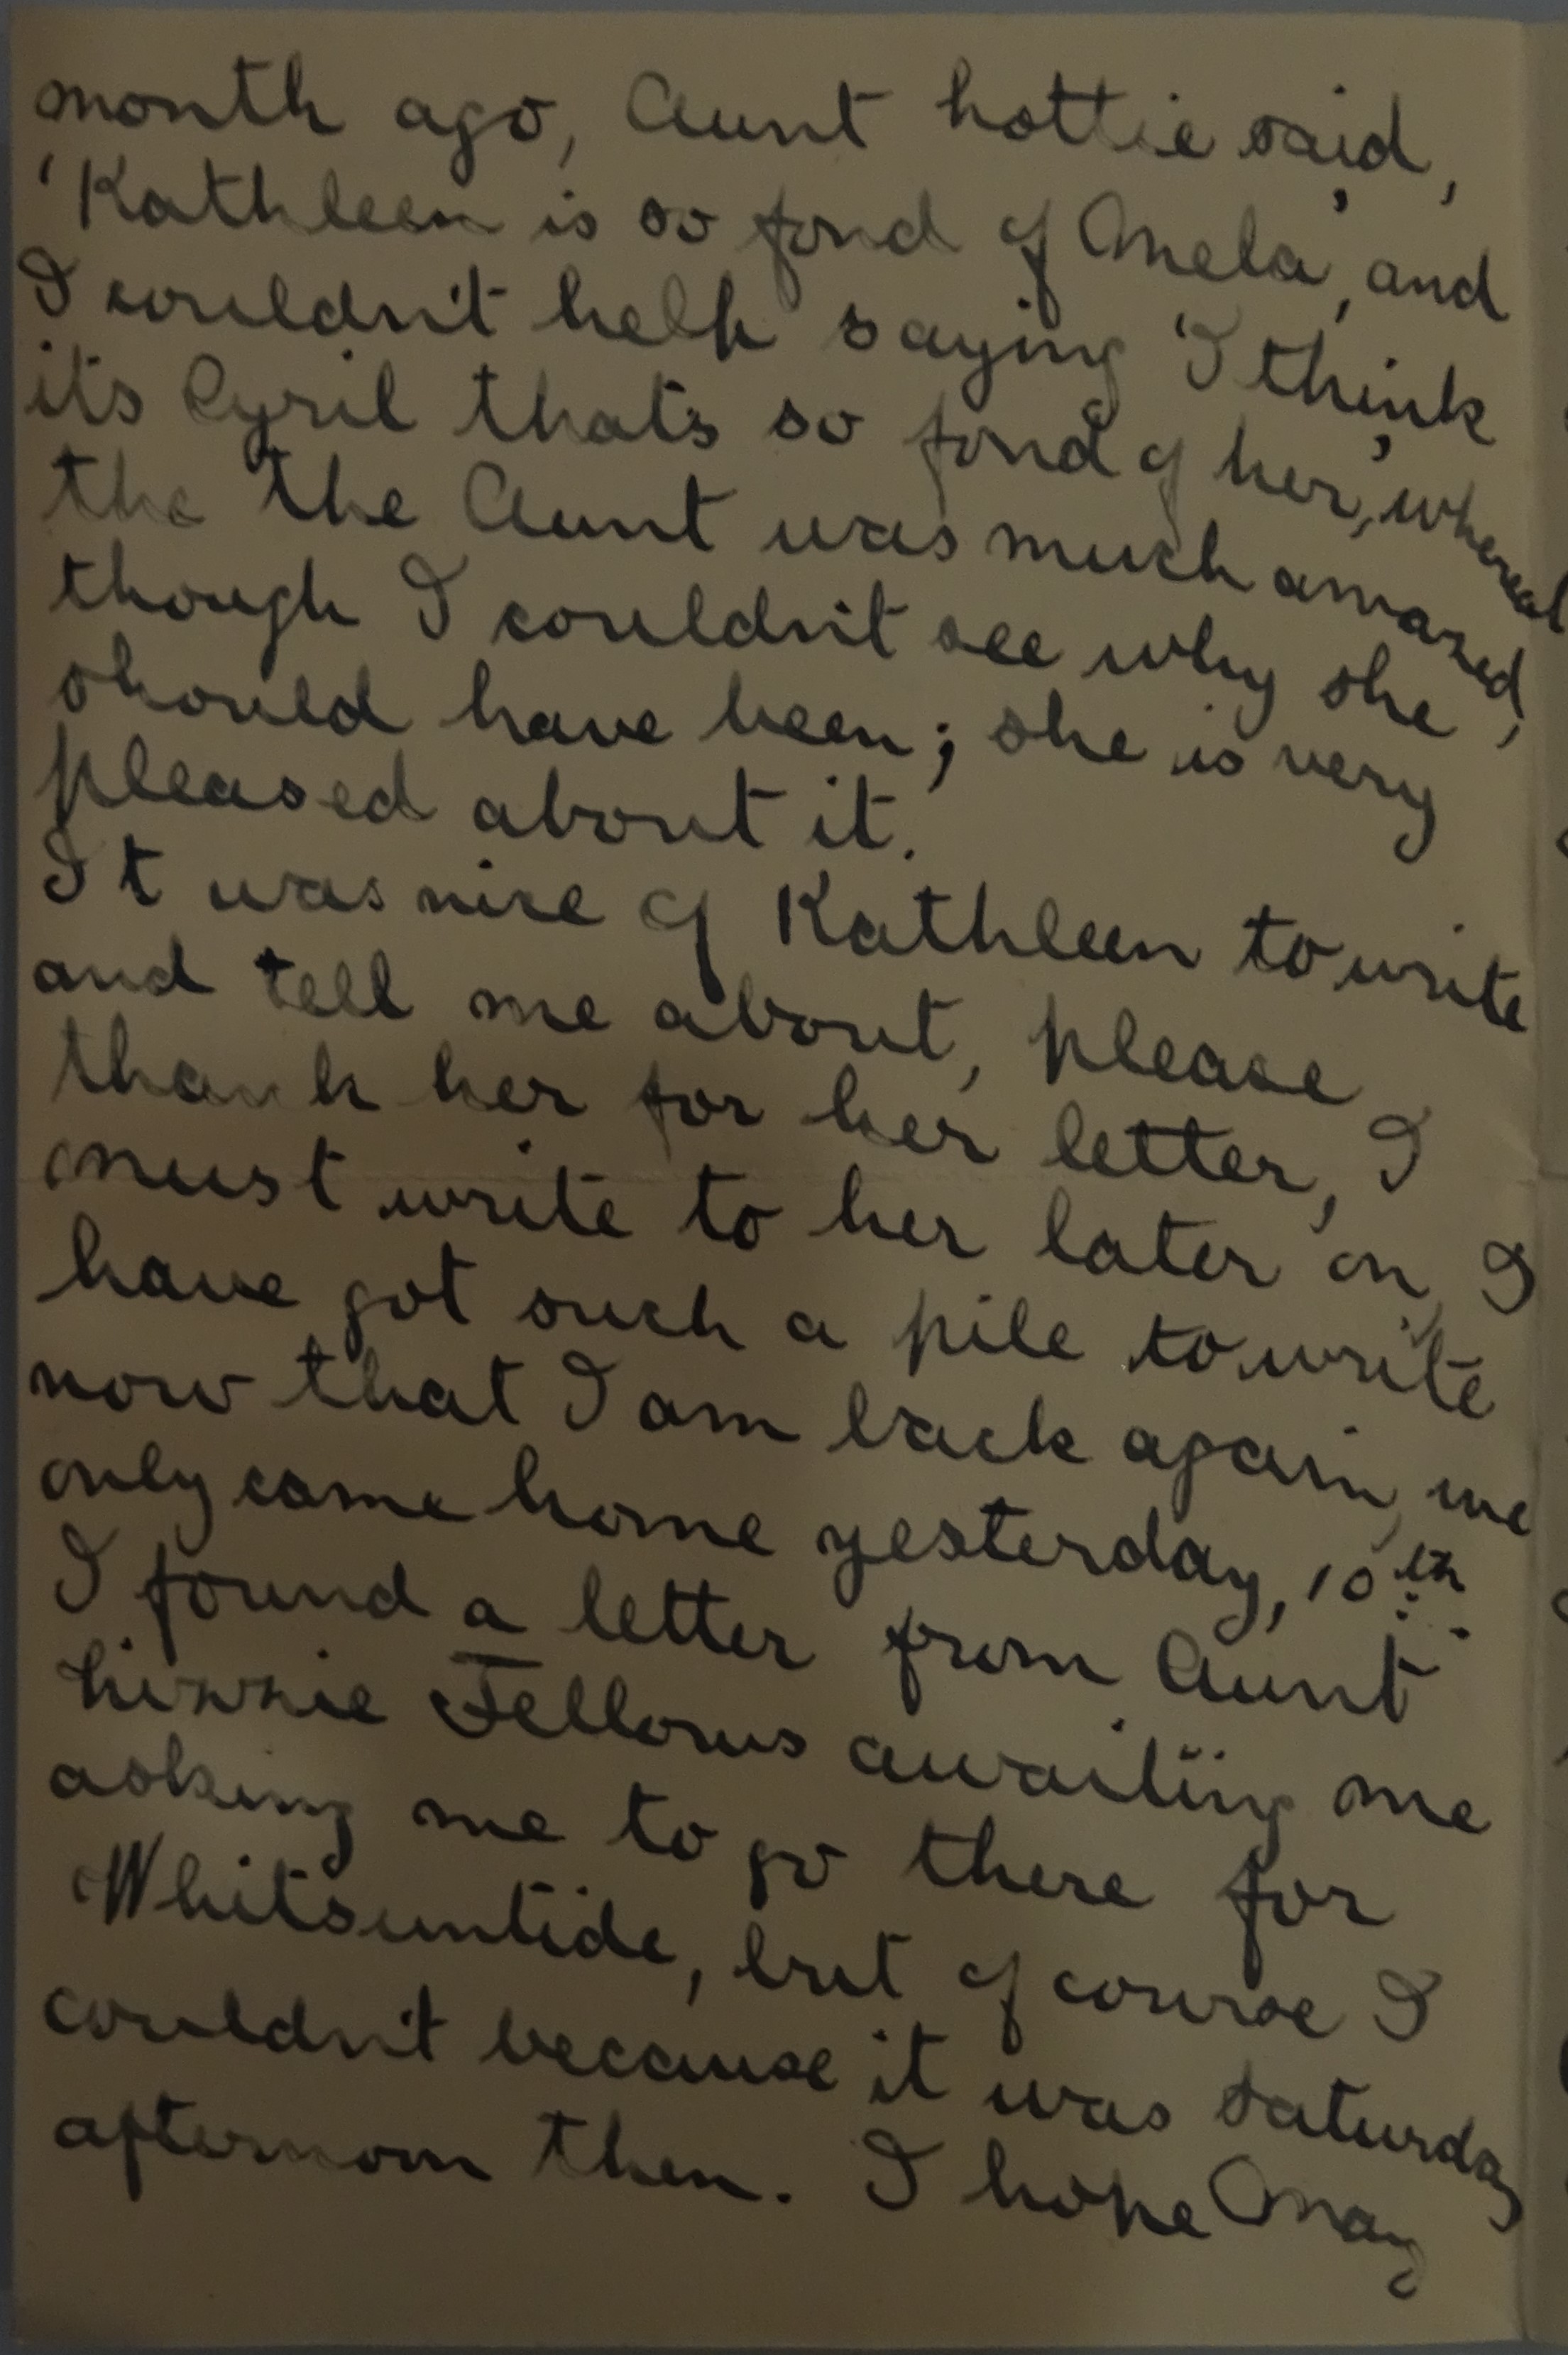 month ago, Aunt Lottie said,
'Kathleen is so fond of Mela', and
I couldn't help saying 'I think
it's Cyril that's so fond of her', whereat
the the Aunt was much amazed,
though I couldn't see why she
should have been; she is very
pleased about it.
It was nice of Kathleen to write
and tell me about, please
thank her for her letter, I
must write to her later on, I
have got such a pile to write
now that I am back again, we
only came home yesterday, 10th.
I found a letter from Aunt
Lizzie Fellows awaiting me
asking me to go there for
Whitsuntide, but of course I
couldn't because it was Saturday
afternoon then. I hope May